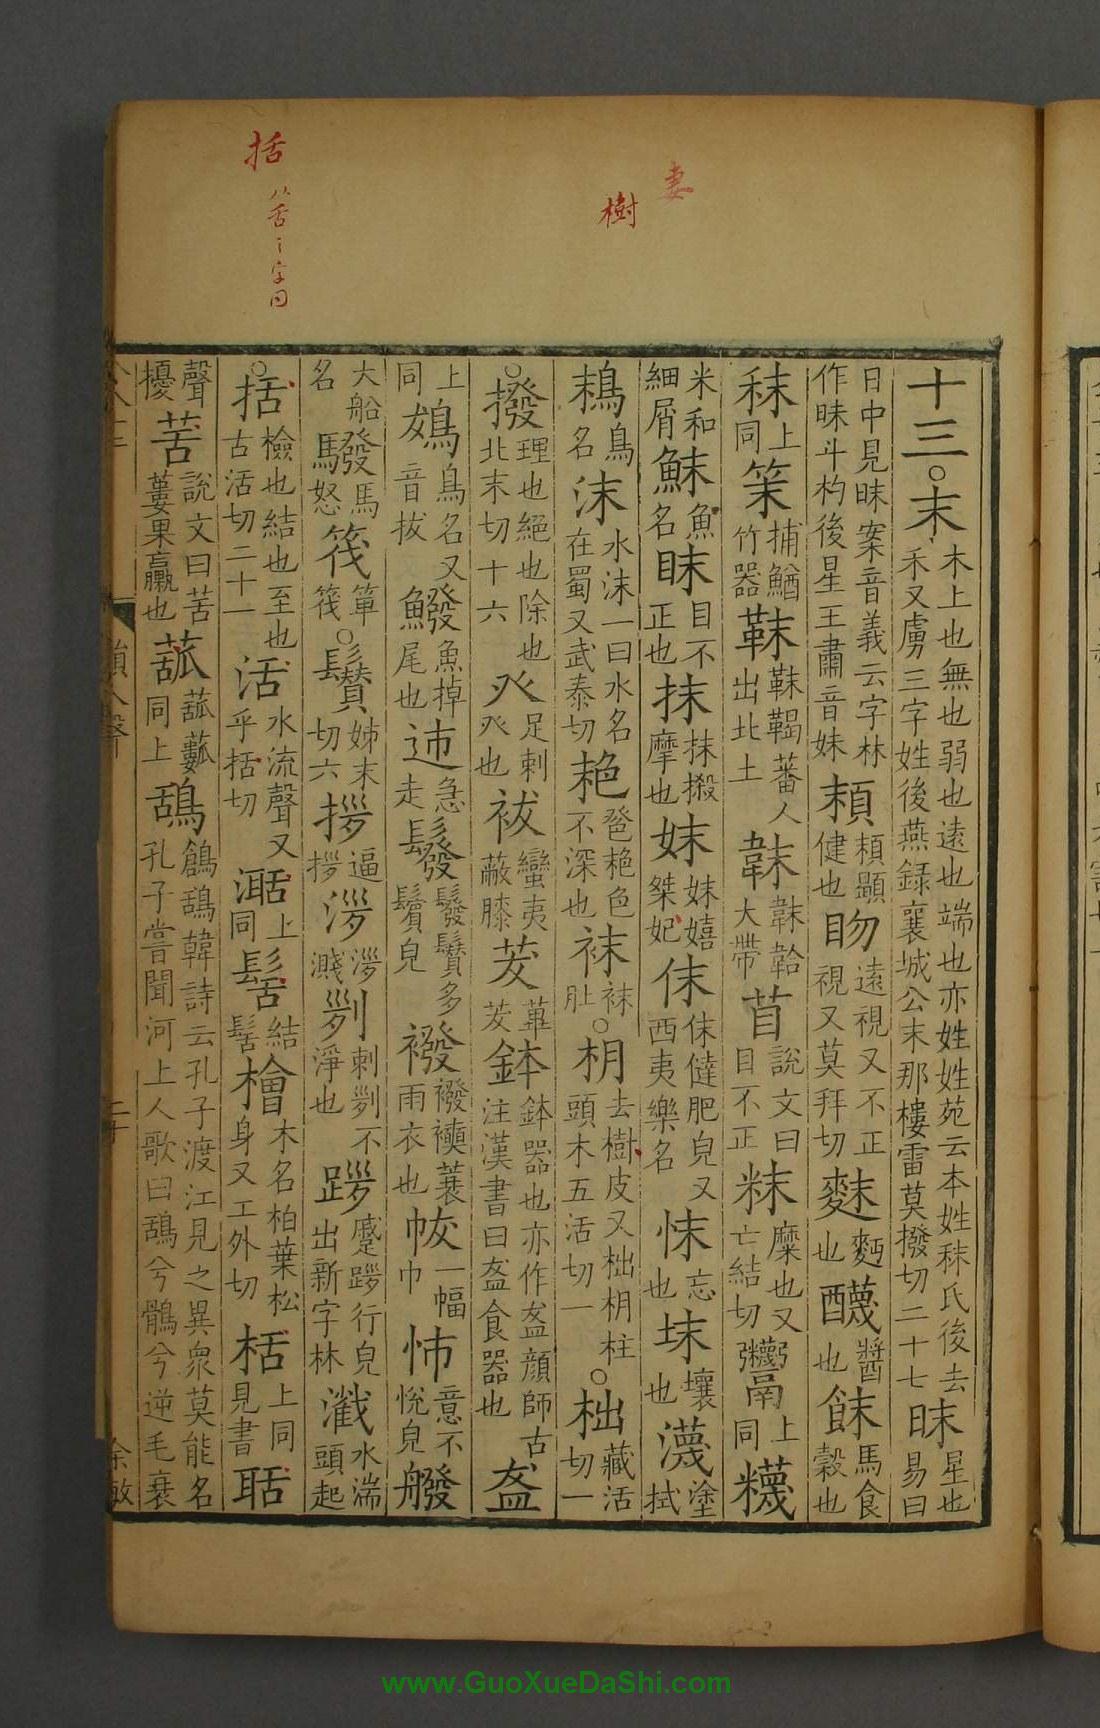 妻
樹
括
从舌之字同
十三○末木上也無也弱也遠也端也亦姓姓苑云本姓秣氏後去禾又虜三字姓後燕録襄城公末那樓雷莫撥切二十七眜星也易曰
日中見昧案音義云字林作昧斗杓後星王肅音妹䫞䫞顯健也眒遠視又不正視又莫拜切麩麪也䤓醬也餗馬食穀也
秣上同䇣捕鰌竹器靺靺鞨蕃人出北土韎韎韐大帶苜説文曰目不正䊳糜也又亡結切䰿上同䊳
米和細屑鮇魚名眜目不正也抹抹摋摩也妺妺嬉桀妃㑻㑻㒓肥皃又西夷樂名怽忘也坺壤也瀎塗拭
鴸鳥名沫水沫一曰水名在蜀又武泰切䒊䒌䒊色不深也袜袜肚○枂去樹皮又柮枂柱頭木五活切一○柮藏活切一
○撥理也絕也除也北末切十六癶足剌癶也袯蠻夷蔽膝茇蓽茇鉢鉢器也亦作盋顏師古注漢書曰盋食器也盋
上同鴔鳥名又音拔鱍魚掉尾也迊急走䰉䰉鬢多鬢皃襏襏襫蓑雨衣也帗一幅巾怖意不悅皃艬
大船名驋馬怒筏箄筏○鬢姊末切六拶逼拶㳨㳨濺㓥刺㓥不淨也䟃䠞䟃行皃出新字林瀐水湍頭起
○括檢也結也至也古活切二十一活水流聲又乎括切𣿅上同髺結髺檜木名柏葉松身又工外切栝上同見書聒
聲擾苦說文曰苦蔞果蠃也䒷䒷蔞同上鴰鶬鴰韓詩云孔子渡江見之異衆莫能名孔子嘗聞河上人歌曰鴰兮鶻兮逆毛衰
余敏
www.GuoXueDaShi.com